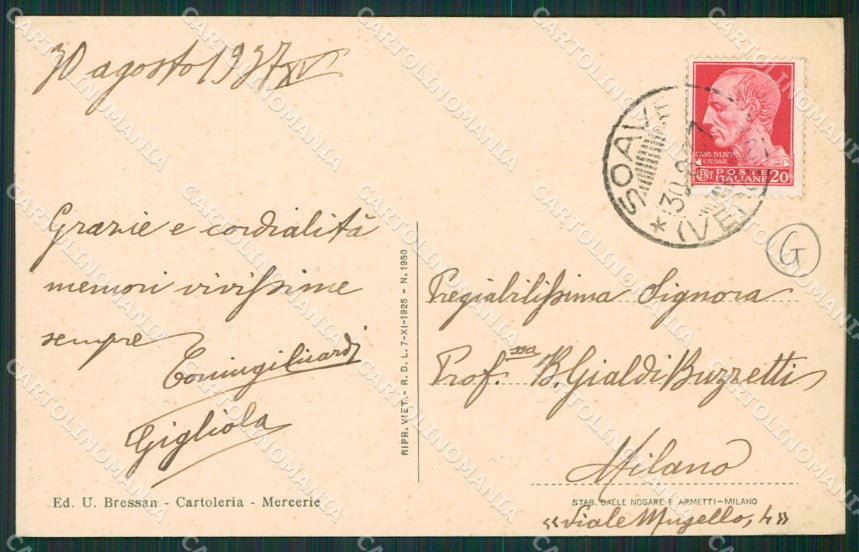 30 agosto 1937 XV
Grazie e cordialità
memori vivissime
sempre
Gigliola
Ed. U. Bressan - Cartoleria - Mercerie
RIPR. VIET. - R. D. L. 7-XI-1925 - N. 1950
SOAVE
30.8.37
(VERONA)
*
CAIVS IVLIVS
CAESAR
CENT POSTE
ITALIANE 20
G
Pregiabilissima Signora
Prof.ssa B. Gialdi Buzzetti
Milano
STAB. DALLE NOGARE E ARMETTI-MILANO
«Viale Mugello, 4»
CARTOLINOMANIA